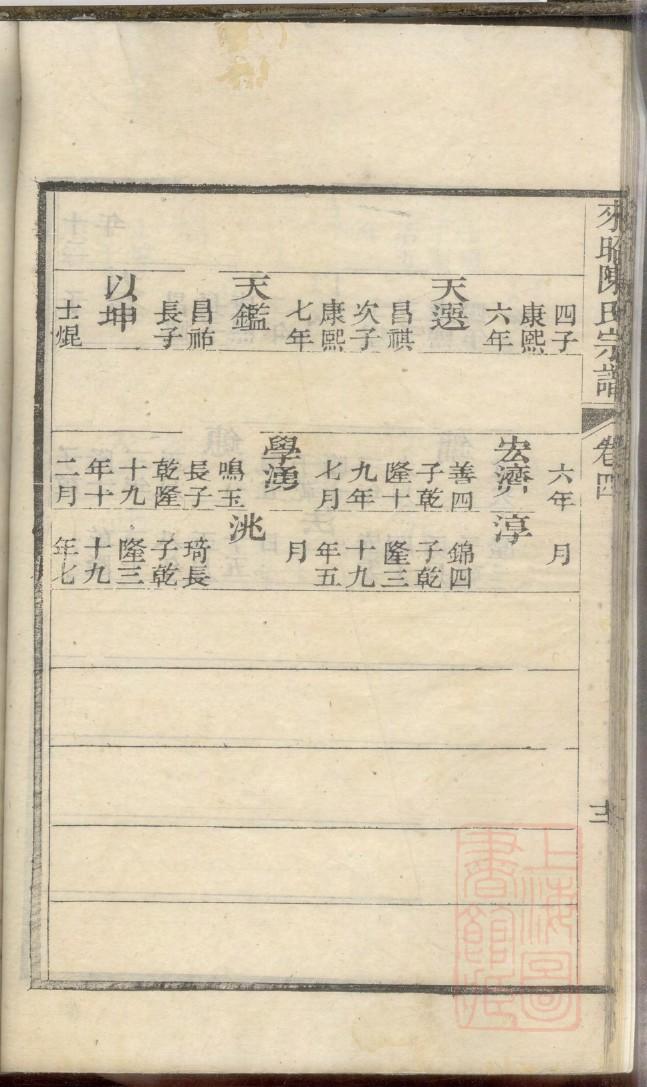 來昭陳氏宗譜
卷四
四子
康熙
六年
天選
昌祺
次子
康熙
七年
天鑑
昌祐
長子
以坤
士焜
六年
宏濟
善四
子乾
隆十
九年
七月
學湧
鳴玉
長子
乾隆
十九
年十
二月
月
淳
錦四
子乾
隆三
十九
年五
月
洮
琦長
子乾
隆三
十九
年七
上海圖
書館藏